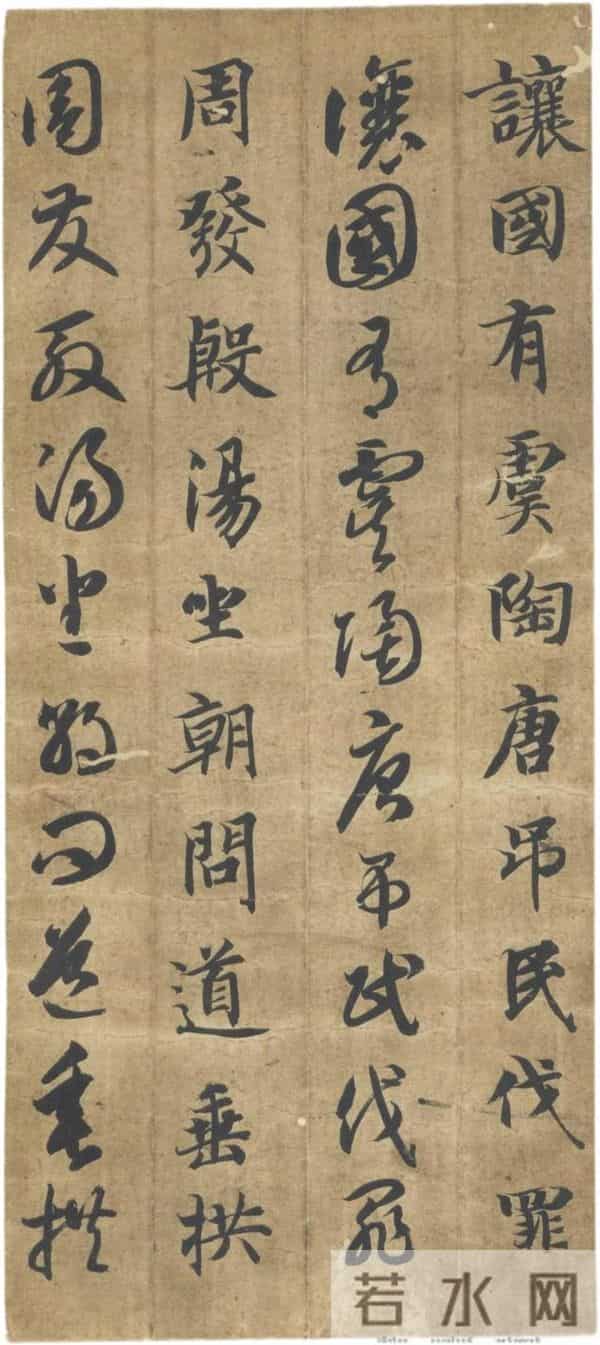 讓國有虞陶唐吊民伐罪
讓國有虞陶唐吊民伐罪
周發殷湯坐朝問道垂拱
周發殷湯坐朝問道垂拱
若水网